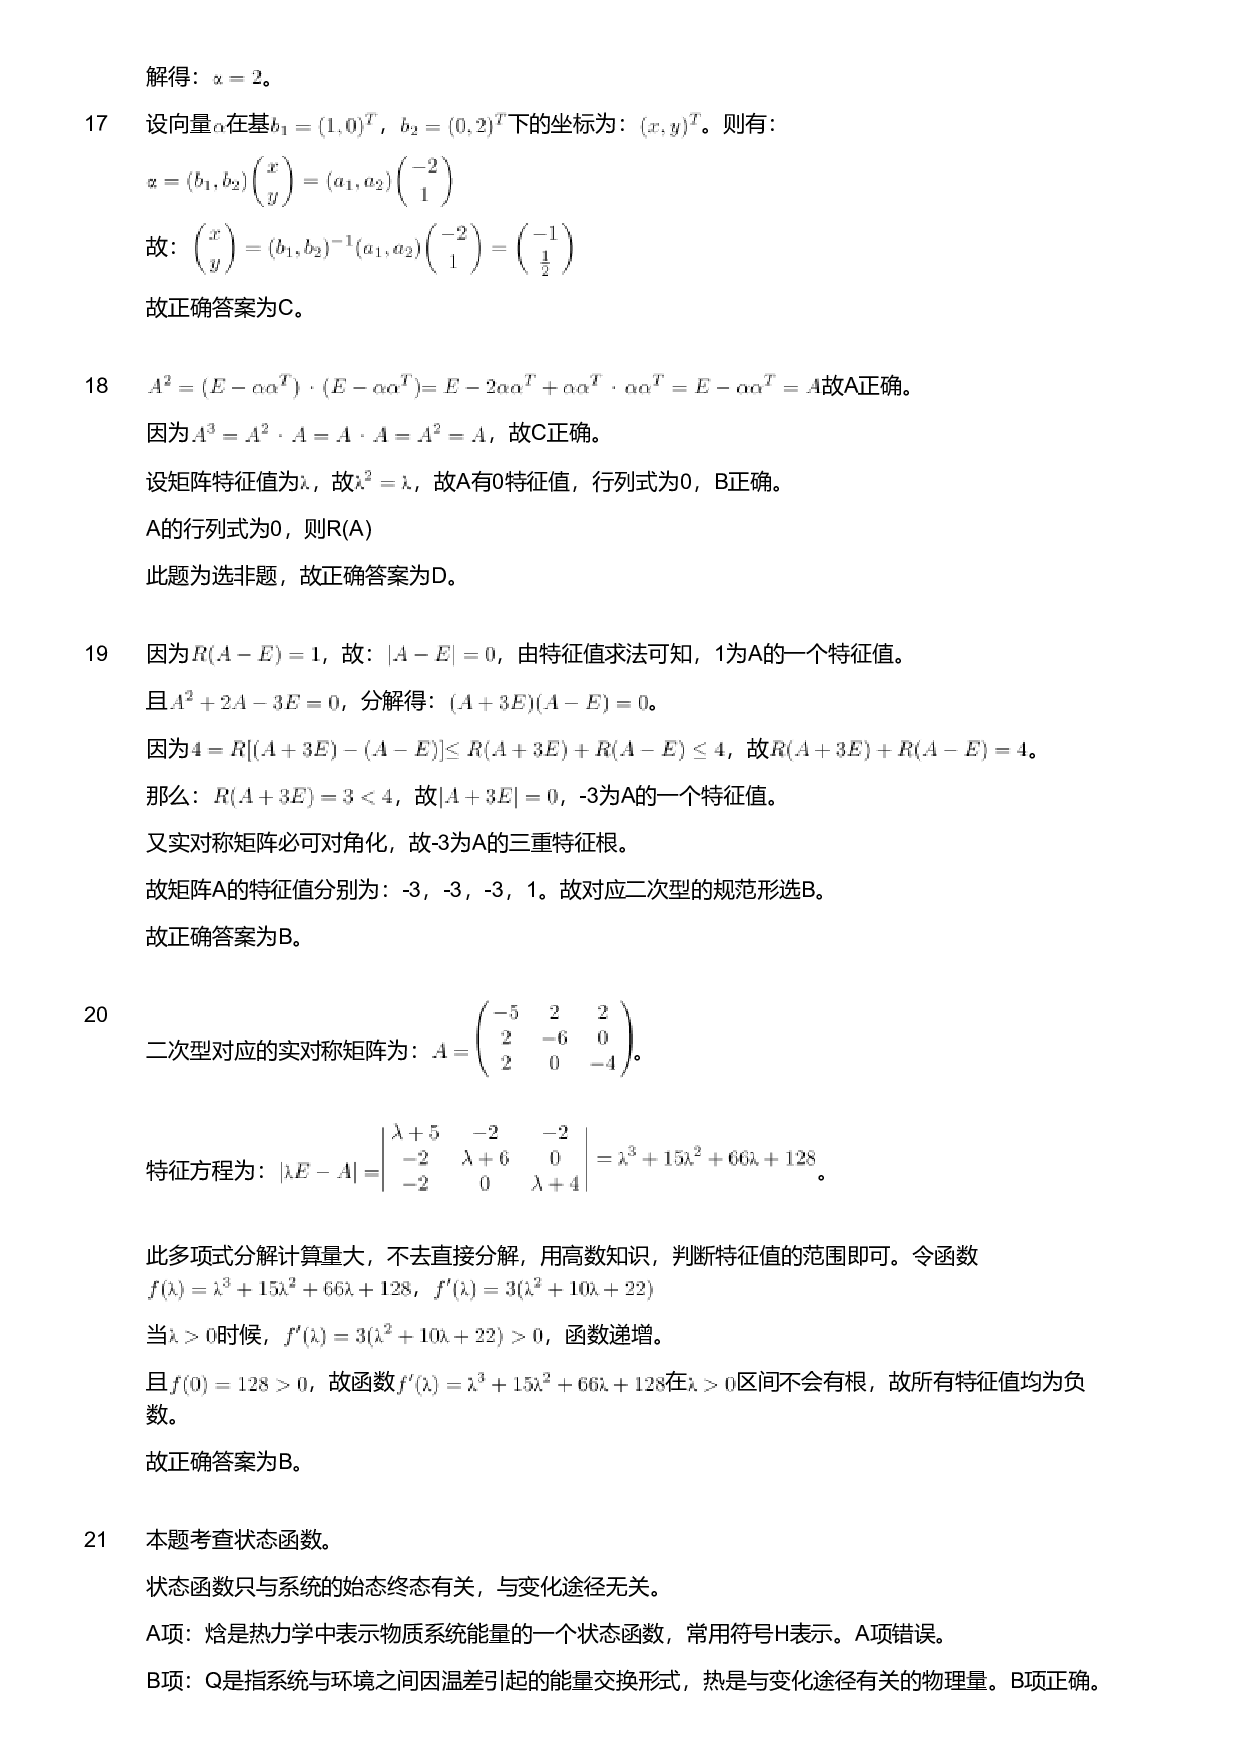 解得：α = 2。
17 设向量α在基b₁ = (1, 0)ᵀ，b₂ = (0, 2)ᵀ下的坐标为：(x, y)ᵀ。则有：
α = (b₁, b₂)(x y) = (a₁, a₂)(−2 1)
故：(x y) = (b₁, b₂)⁻¹(a₁, a₂)(−2 1) = (−1 1/2)
故正确答案为C。
18 A² = (E − ααᵀ) · (E − ααᵀ)= E − 2ααᵀ + ααᵀ · ααᵀ = E − ααᵀ = A故A正确。
因为A³ = A² · A = A · A = A² = A，故C正确。
设矩阵特征值为λ，故λ² = λ，故A有0特征值，行列式为0，B正确。
A的行列式为0，则R(A)
此题为选非题，故正确答案为D。
19 因为R(A − E) = 1，故：|A − E| = 0，由特征值求法可知，1为A的一个特征值。
且A² + 2A − 3E = 0，分解得：(A + 3E)(A − E) = 0。
因为4 = R[(A + 3E) − (A − E)]≤ R(A + 3E) + R(A − E) ≤ 4，故R(A + 3E) + R(A − E) = 4。
那么：R(A + 3E) = 3 < 4，故|A + 3E| = 0，-3为A的一个特征值。
又实对称矩阵必可对角化，故-3为A的三重特征根。
故矩阵A的特征值分别为：-3，-3，-3，1。故对应二次型的规范形选B。
故正确答案为B。
20 二次型对应的实对称矩阵为：A = (−5 2 2
2 −6 0
2 0 −4)。
特征方程为：|λE − A| = |λ + 5 −2 −2
−2 λ + 6 0
−2 0 λ + 4| = λ³ + 15λ² + 66λ + 128。
此多项式分解计算量大，不去直接分解，用高数知识，判断特征值的范围即可。令函数
f(λ) = λ³ + 15λ² + 66λ + 128，f′(λ) = 3(λ² + 10λ + 22)
当λ > 0时候，f′(λ) = 3(λ² + 10λ + 22) > 0，函数递增。
且f(0) = 128 > 0，故函数f′(λ) = λ³ + 15λ² + 66λ + 128在λ > 0区间不会有根，故所有特征值均为负
数。
故正确答案为B。
21 本题考查状态函数。
状态函数只与系统的始态终态有关，与变化途径无关。
A项：焓是热力学中表示物质系统能量的一个状态函数，常用符号H表示。A项错误。
B项：Q是指系统与环境之间因温差引起的能量交换形式，热是与变化途径有关的物理量。B项正确。